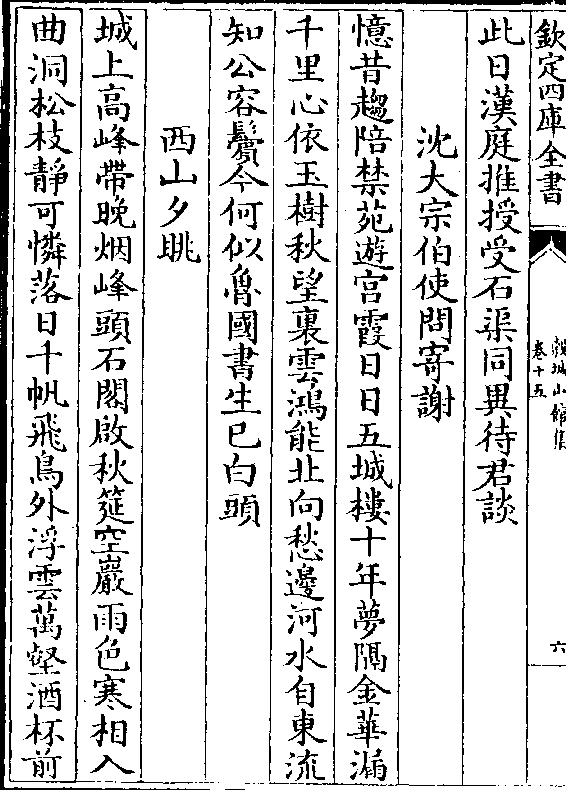 欽定四庫全書
穀城山館集
卷十五
六
此日漢庭推授受石渠同異待君談
沈大宗伯使問寄謝
憶昔趨陪禁苑遊宫霞日日五城樓十年夢隔金華漏
千里心依玉樹秋望裏雲鴻能北向愁邊河水自東流
知公容鬢今何似魯國書生已白頭
西山夕眺
城上高峰帶晚烟峰頭石閣啟秋筵空巖雨色寒相入
曲洞松枝靜可憐落日千帆飛鳥外浮雲萬壑酒杯前